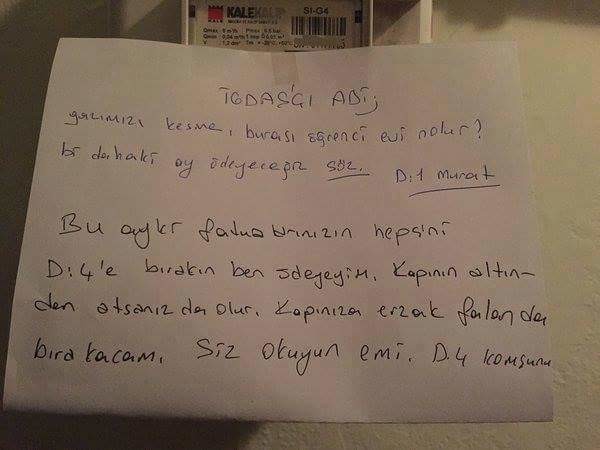 KALE KALEKALIP SI-G4
Qmax 6 m³/h Pmax 0.5 bar
Qmin 0,04 m³/h
V 1,2 dm³
İGDAŞ'ÇI ABİ;
gazımızı kesme, burası öğrenci evi nolur?
bi dahaki ay ödeyeceğiz söz. D:1 Murat
Bu ayki faturalarınızın hepsini
D:4'e bırakın ben ödeyeyim. Kapının altın-
dan atsanız da olur. Kapınıza erzak falan da
bırakacam. Siz okuyun emi. D.4 komşunu